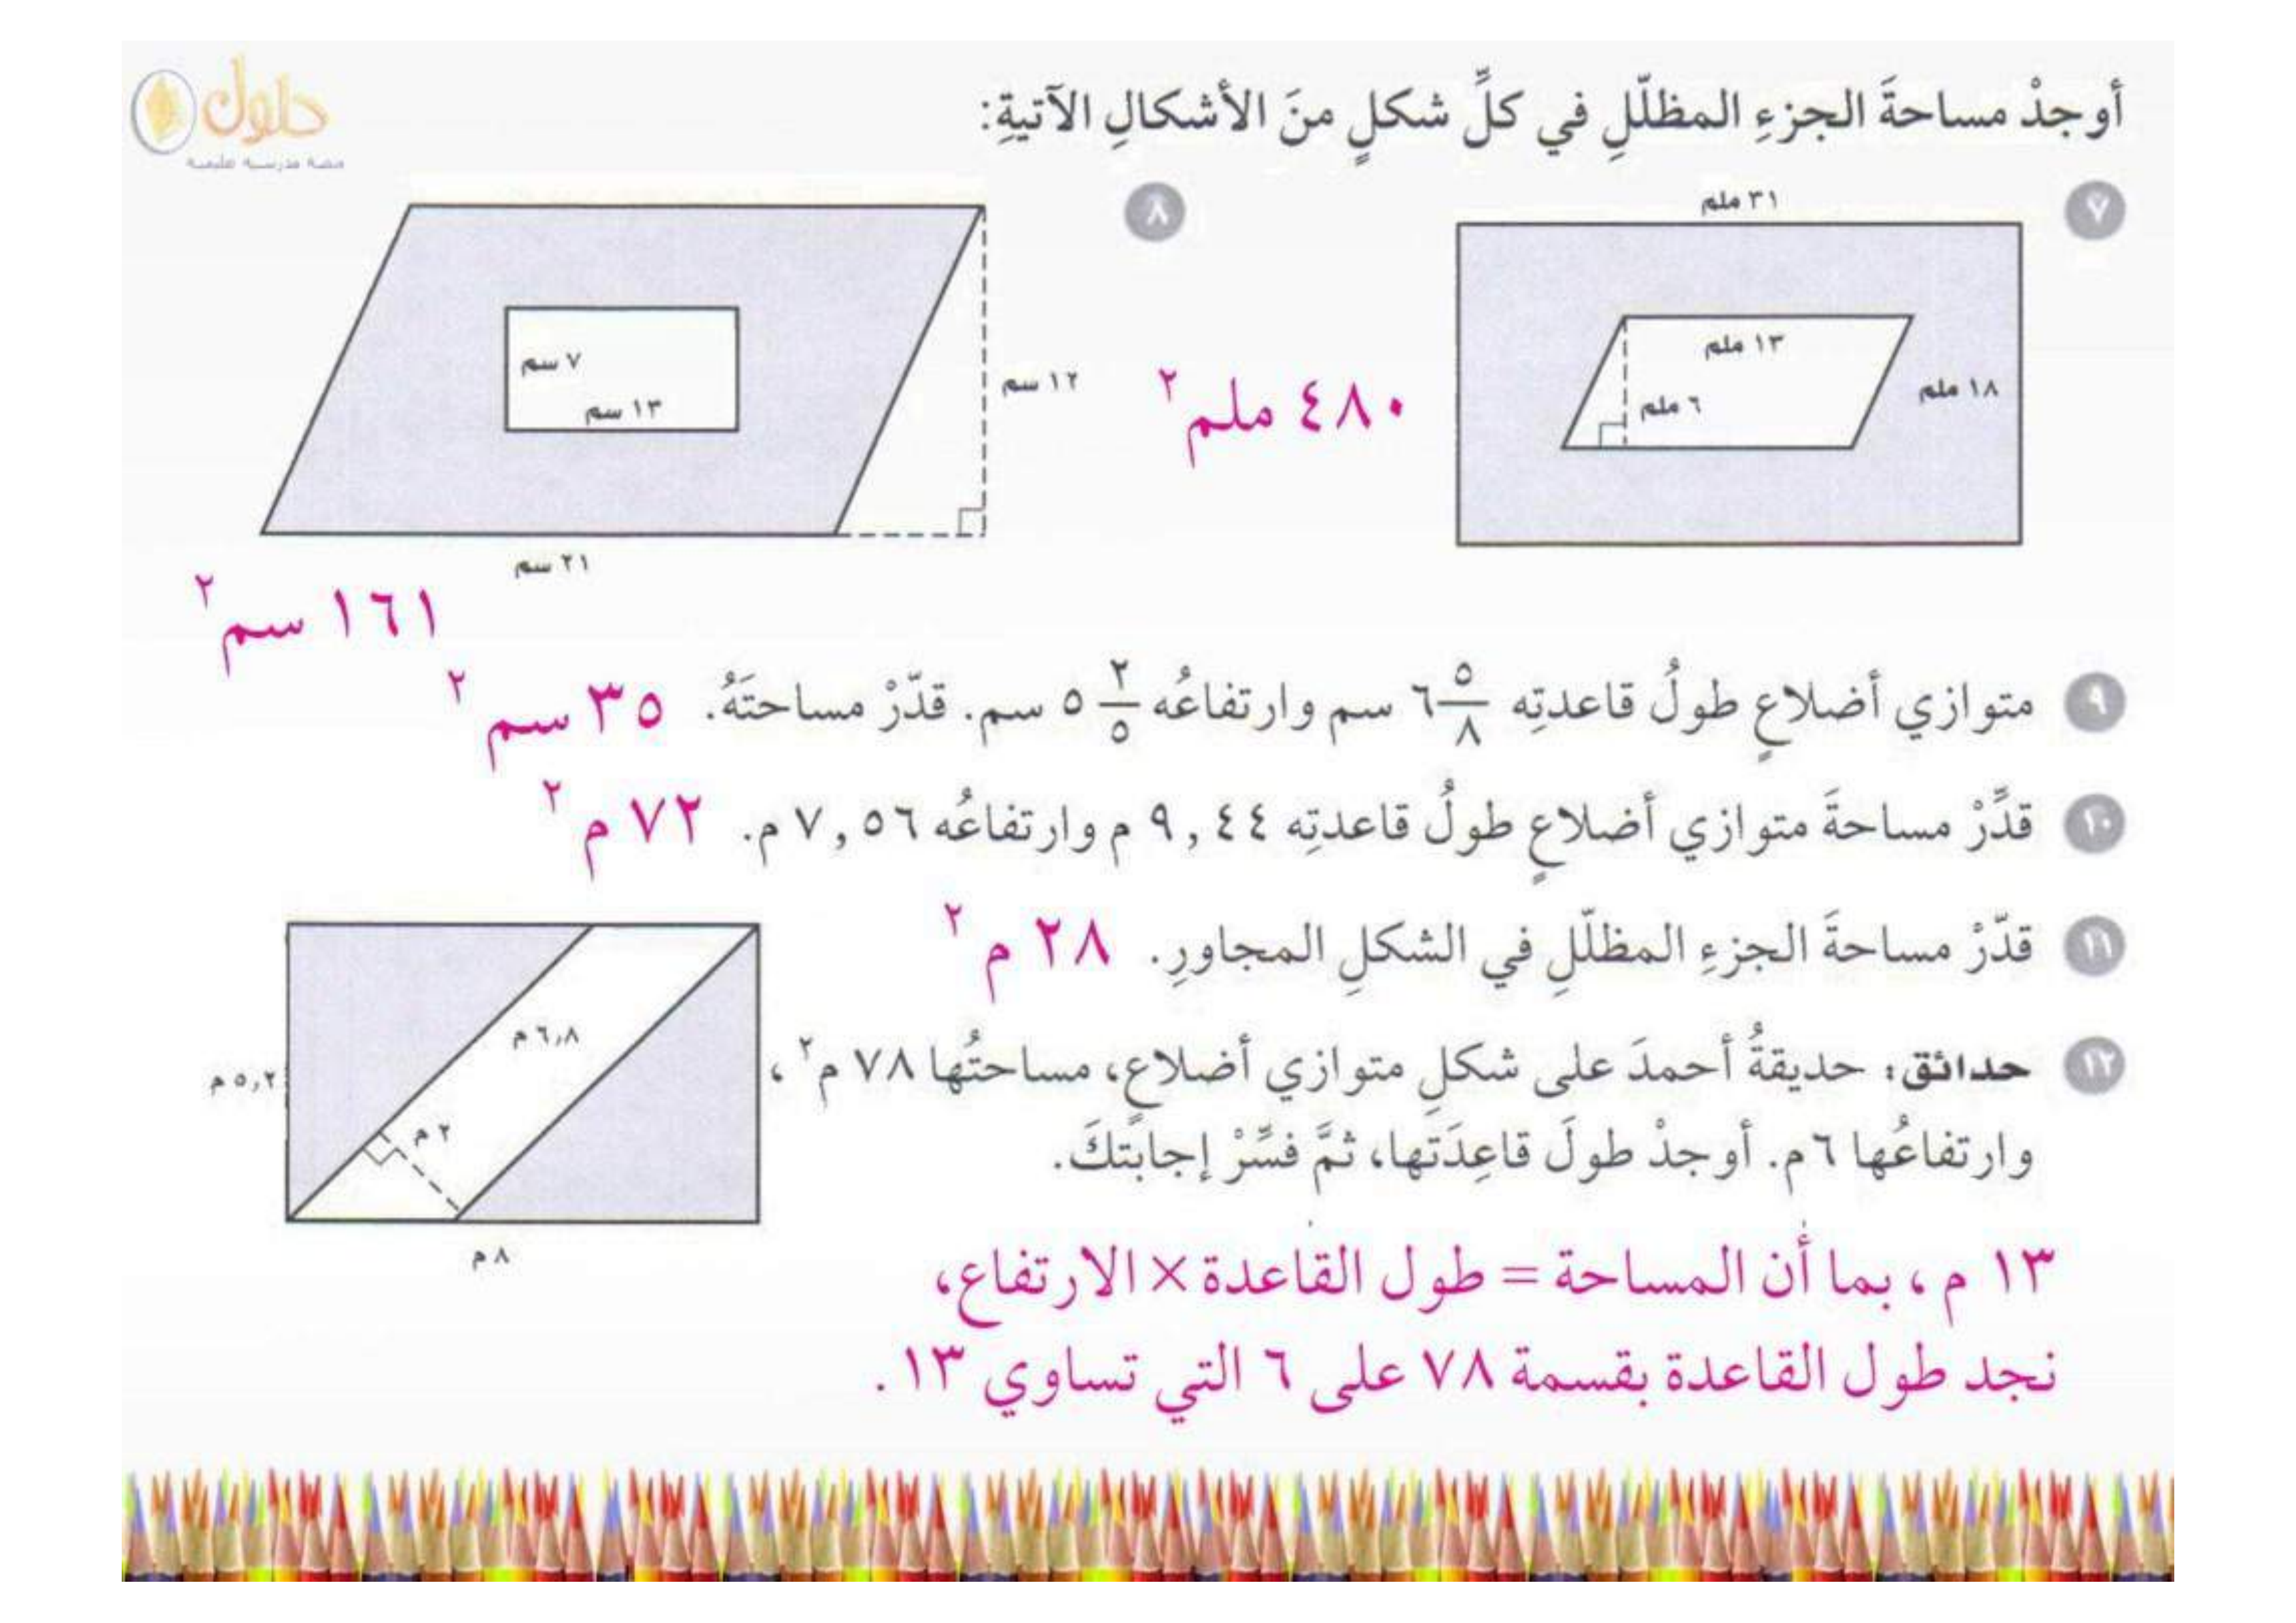 حلول
منصة مدرستي التعليمية
أوجدْ مساحةَ الجزءِ المظلّلِ في كلِّ شكلٍ منَ الأشكالِ الآتيةِ:
٧
٣١ ملم
١٣ ملم
٦ ملم
١٨ ملم
٤٨٠ ملم٢
٨
٧ سم
١٣ سم
١٢ سم
٢١ سم
١٦١ سم٢
٩ متوازي أضلاعٍ طولُ قاعدتِه ٦ ٥/٨ سم وارتفاعُه ٥ ٢/٥ سم. قدّرْ مساحتَهُ. ٣٥ سم٢
١٠ قدِّرْ مساحةَ متوازي أضلاعٍ طولُ قاعدتِه ٩,٤٤ م وارتفاعُه ٧,٥٦ م. ٧٢ م٢
١١ قدّرْ مساحةَ الجزءِ المظلّلِ في الشكلِ المجاورِ. ٢٨ م٢
٦,٨ م
٥,٢ م
٢ م
٨ م
١٢ حدائق: حديقةُ أحمدَ على شكلِ متوازي أضلاعٍ، مساحتُها ٧٨ م٢،
وارتفاعُها ٦م. أوجدْ طولَ قاعِدَتها، ثمَّ فسِّرْ إجابَتكَ.
١٣ م، بما أن المساحة = طول القاعدة × الارتفاع،
نجد طول القاعدة بقسمة ٧٨ على ٦ التي تساوي ١٣.